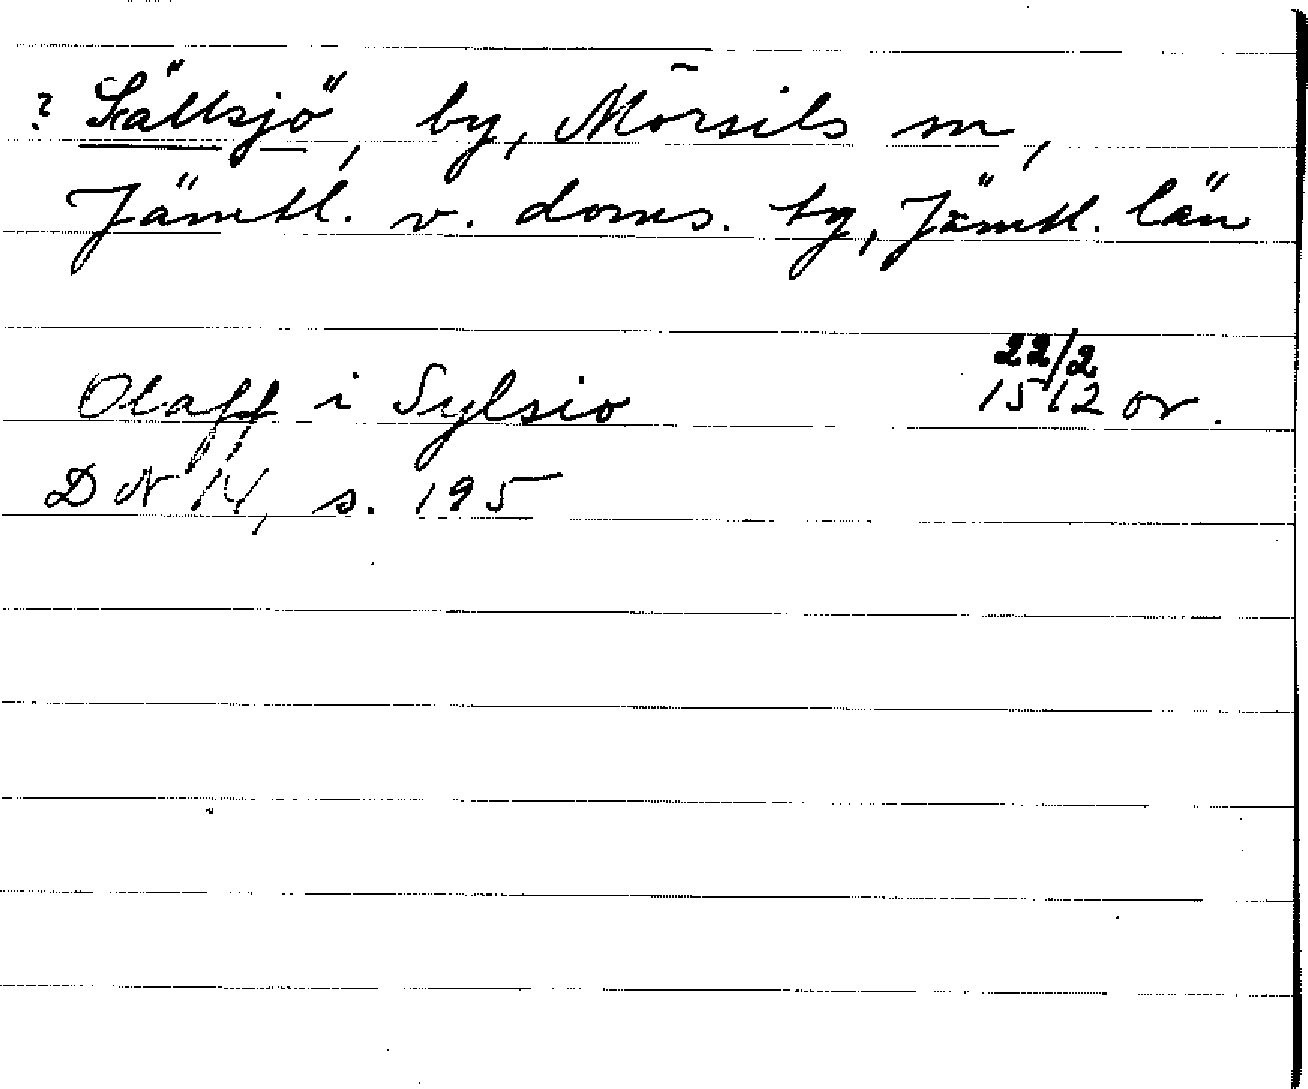 ? Sällsjö, by, Mörsils sn,
Jämtl. v. doms. tg, Jämtl. län
22/2
Olaff i Sylsio 1512 or.
DN 14, s. 195